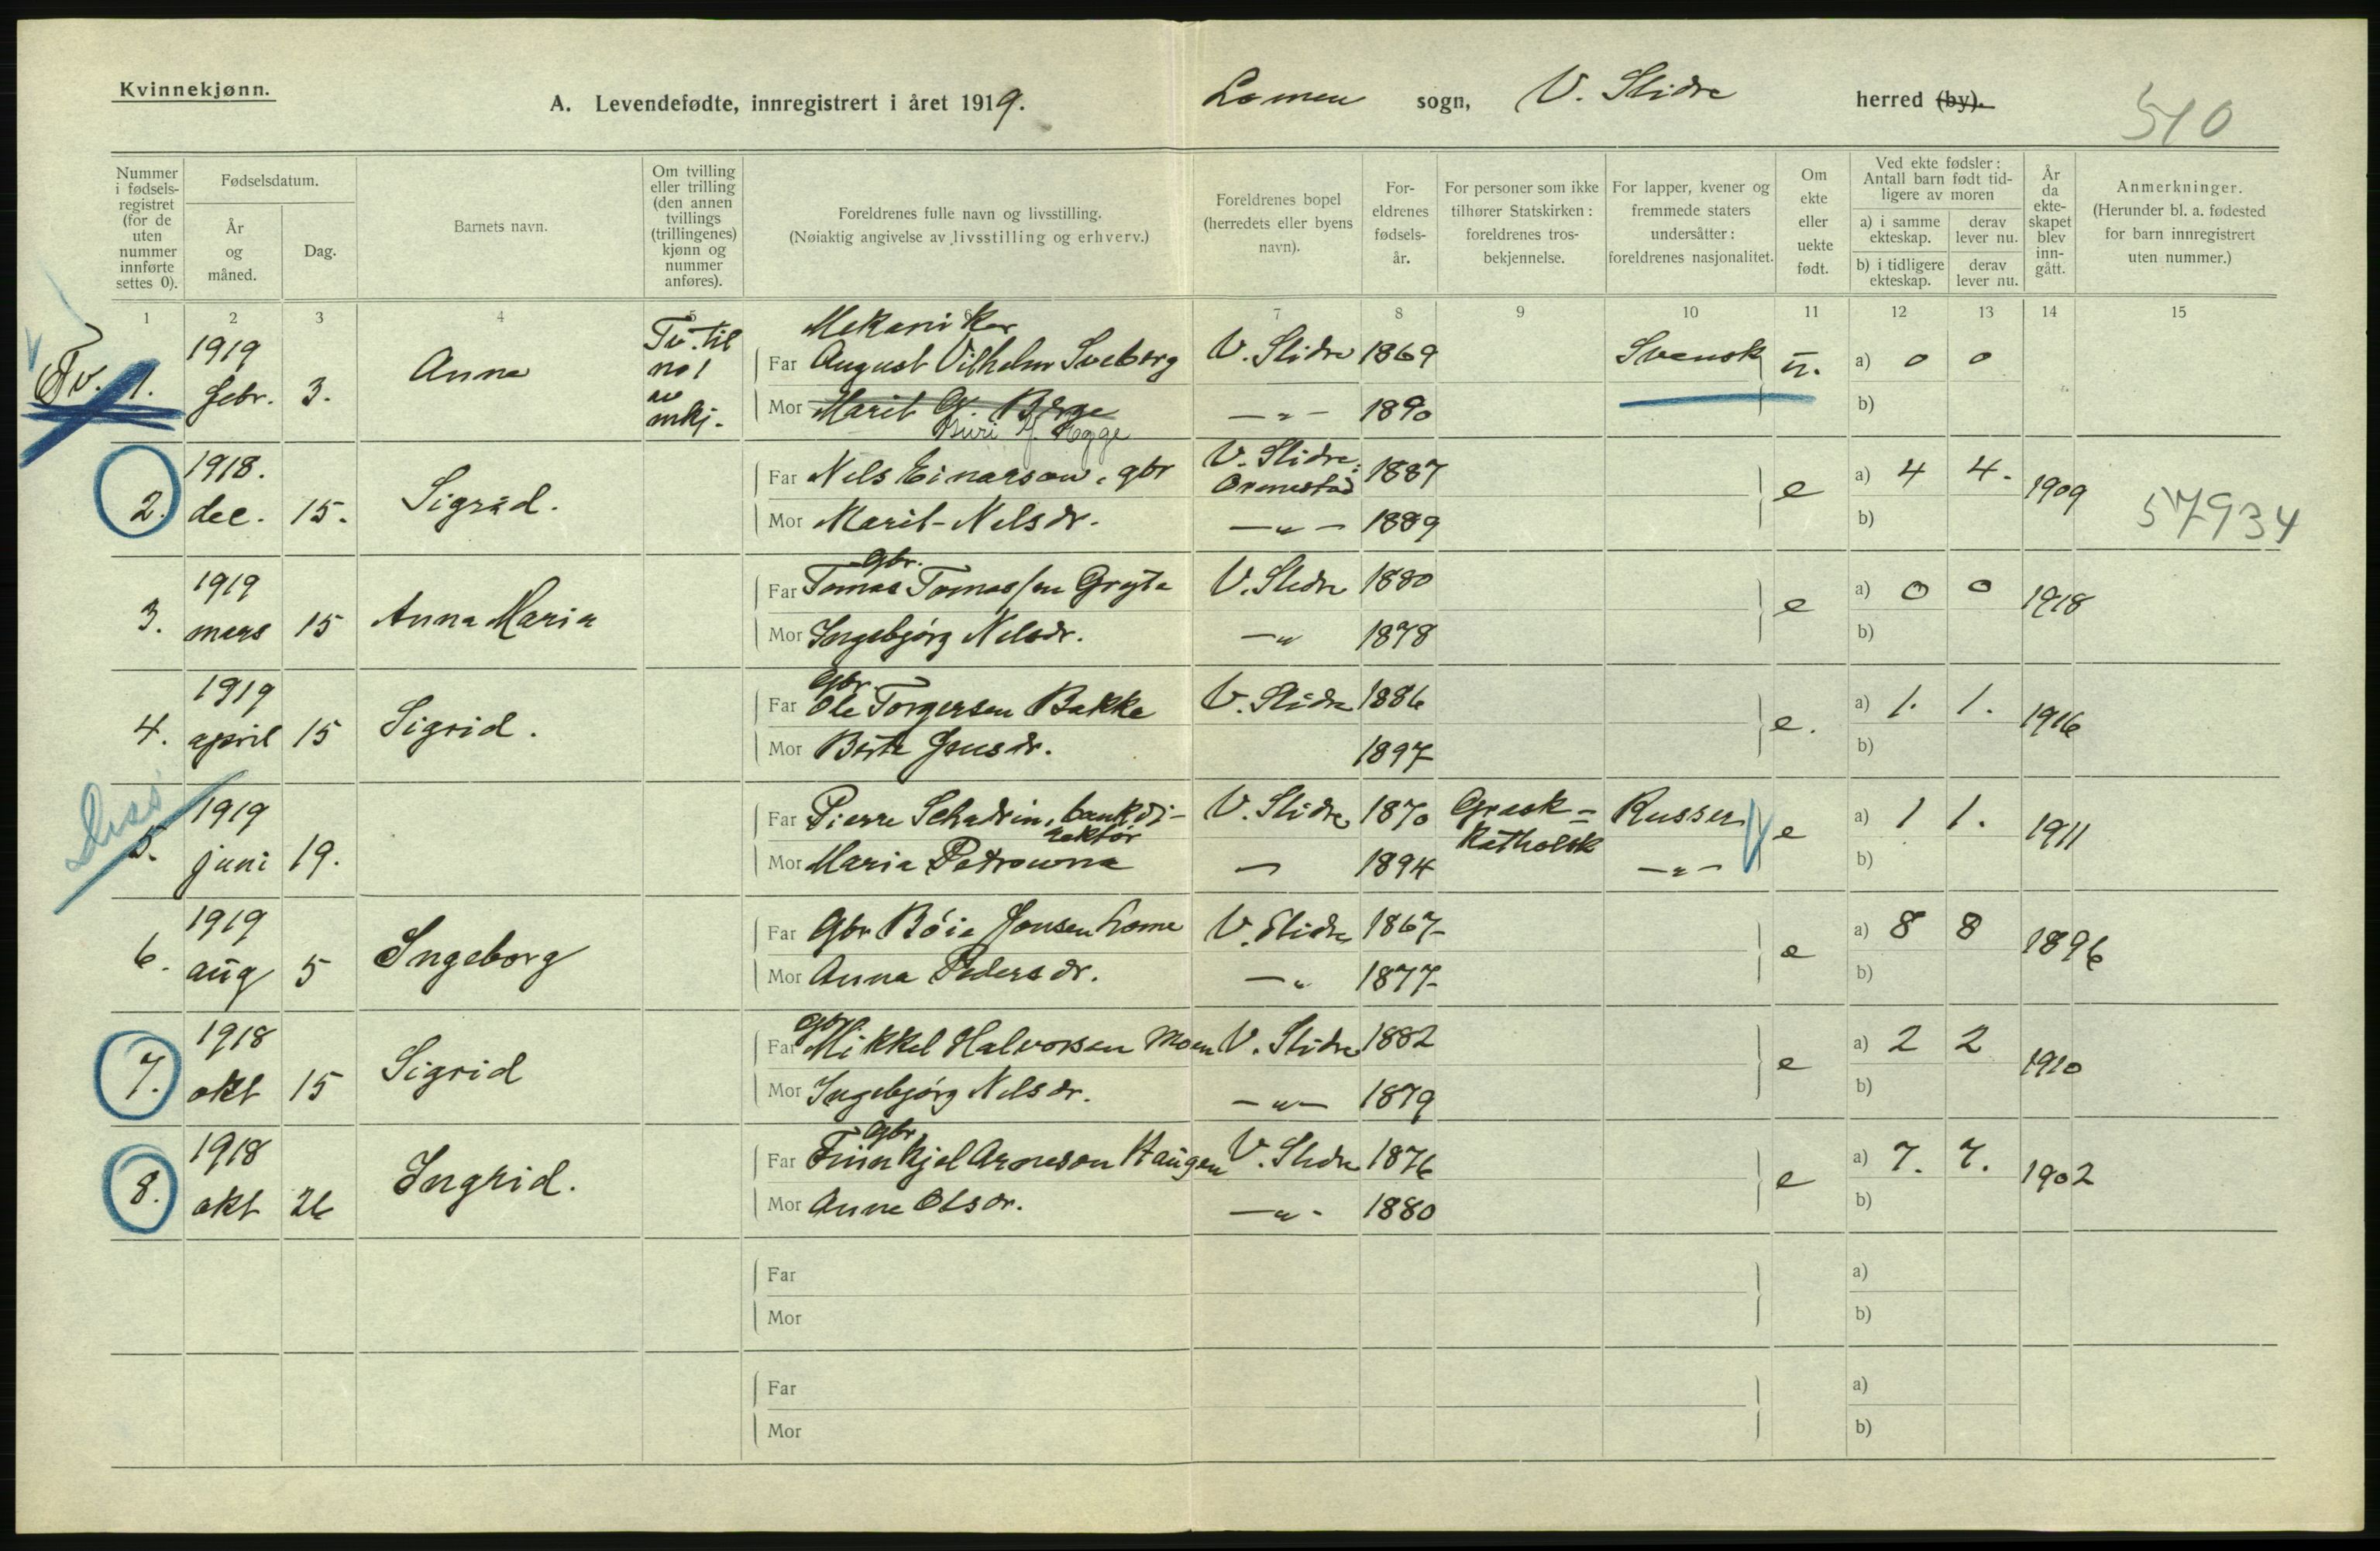 Kvinnekjønn.
A. Levendefødte, innregistrert i året 1919.
Lomen sogn, V. Slidre herred (by).
510
Nummer i fødsels-registret (for de uten nummer innførte settes 0).
Fødselsdatum.
År og måned.
Dag.
Barnets navn.
Om tvilling eller trilling (den annen tvillings (trillingenes) kjønn og nummer anføres).
Foreldrenes fulle navn og livsstilling.
(Nøiaktig angivelse av livsstilling og erhverv.)
Foreldrenes bopel (herredets eller byens navn).
For-eldrenes fødsels-år.
For personer som ikke tilhører Statskirken: foreldrenes tros-bekjennelse.
For lapper, kvener og fremmede staters undersåtter: foreldrenes nasjonalitet.
Om ekte eller uekte født.
Ved ekte fødsler: Antall barn født tid-ligere av moren
a) i samme ekteskap.
derav lever nu.
b) i tidligere ekteskap.
derav lever nu.
År da ekte-skapet blev inn-gått.
Anmerkninger.
(Herunder bl. a. fødested for barn innregistrert uten nummer.)
1 2 3 4 5 6 7 8 9 10 11 12 13 14 15
Tv. 1. 1919 febr. 3. Anna Tv. til no 1 av mkj.
Mekaniker
Far August Vilhelm Sveberg V. Slidre 1869 Svensk u. a) 0 0
Mor Marit G. Berge -"- 1890 b)
Guri Hegge
2. 1918. dec. 15. Sigrid.
Far Nels Einarson, gbr V. Slidre: 1887 e a) 4 4. 1909
Mor Marit Nelsdr. -"- 1889 b)
57934
3. 1919 mars 15 Anna Maria
Gbr.
Far Tomas Tomassen Gryta V. Slidre 1880 e a) 0 0 1918
Mor Ingebjørg Nelsdr. -" 1878 b)
4. 1919 april 15 Sigrid.
Gbr.
Far Ole Torgersen Bakke V. Slidre 1886 e. a) 1. 1. 1916
Mor Berte Jensdr. 1897 b)
5. 1919 juni 19.
Far Pierre Schadrin, bankdi- V. Slidre 1870 Græsk= Russer e a) 1 1. 1911
rektør Katholsk
Mor Maria Petrowna - 1894 -"- b)
6. 1919 aug 5 Ingeborg
Far Gbr Bøie Jonsen Lome V. Slidre 1867 e a) 8 8 1896
Mor Anna Pedersdr. -" 1877 b)
7. 1918 okt 15 Sigrid
Gbr
Far Mikkel Halvorsen Moen V. Slidre 1882 e a) 2 2 1910
Mor Ingebjørg Nelsdr. -"- 1879 b)
8. 1918 okt 26 Ingrid.
Gbr
Far Finnkjel Arneson Haugen V. Slidre 1876 e a) 7. 7. 1902
Mor Anne Olsdr. -"- 1880 b)
Far a)
Mor b)
Far a)
Mor b)